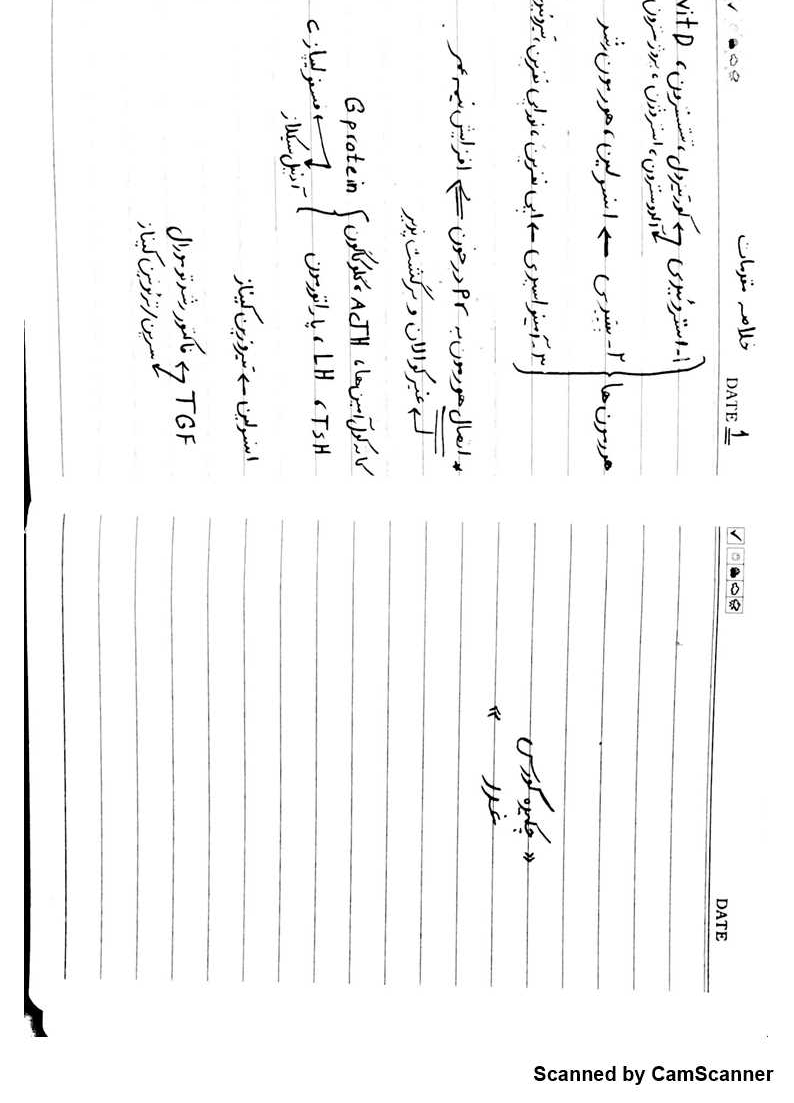 خلاصه مقدمات
DATE 1
هورمون ها
۱- استروئیدی → کورتیزول، تستسترون، vitD
آلدوسترون، استروژن، پروژسترون
۲- پپتیدی → انسولین، هورمون رشد
۳- آمینواسیدی → اپی نفرین، نوراپی نفرین، تیروئید
* اتصال هورمون به Pr در خون ⇐ افزایش نیمه عمر.
غیرکووالان و برگشت پذیر
کاتکول آمین ها، ACTH، گلوکاگون
TSH، LH، پاراتورمون
G protein
فسفولیپاز C
آدنیل سیکلاز
انسولین → تیروزین کیناز
TGF → فاکتور رشد تومورال
سرین/ترئونین کیناز
DATE
« چکیده کورس
غدد »
Scanned by CamScanner